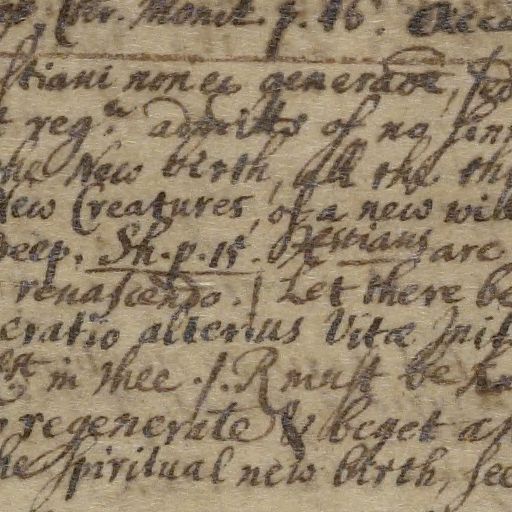 p. 16.
stiani non ex generãoe, sed
reg.ª admitts of no sinn
he New birth, all the th
New Creatures, of a new will
deep. Sh. p. 15. Xestians are
renascendo. / Let there be
eratio alterius Vitæ Init
in thee . /. R must be
regenerate & beget a
he spiritual new birth, see